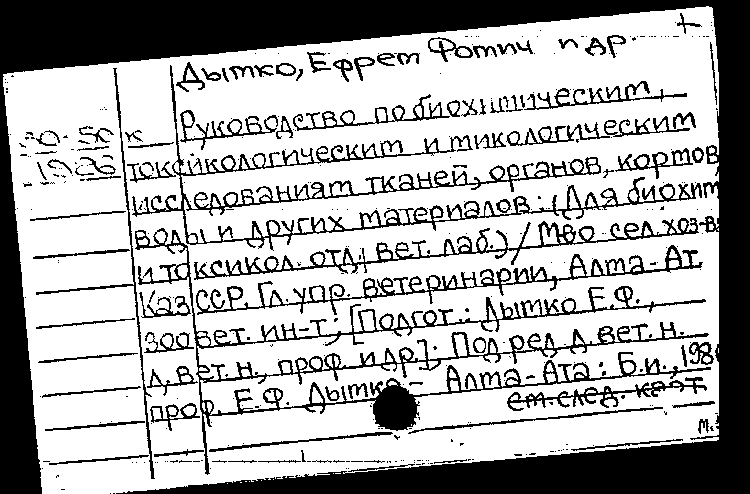 +
Дытко, Ефрет Фотич и др.
30-50 к Руководство по биохитическит,
1986 токсикологическит и тикологическит
исследованият тканей, органов, кортов,
воды и других татериалов: (Для биохит
и токсикол. отд. вет. лаб.) / Мво сел. хоз-в
Каз ССР, Гл. упр. ветеринарии, Алта-Ат.
зоовет. ин-т; [Подгот.: Дытко Е.Ф.,
д. вет. н., проф. и др.]; Под ред. д. вет. н.
проф. Е.Ф. Дытко - Алта-Ата: Б.и., 198
ст. след. карт.
М.